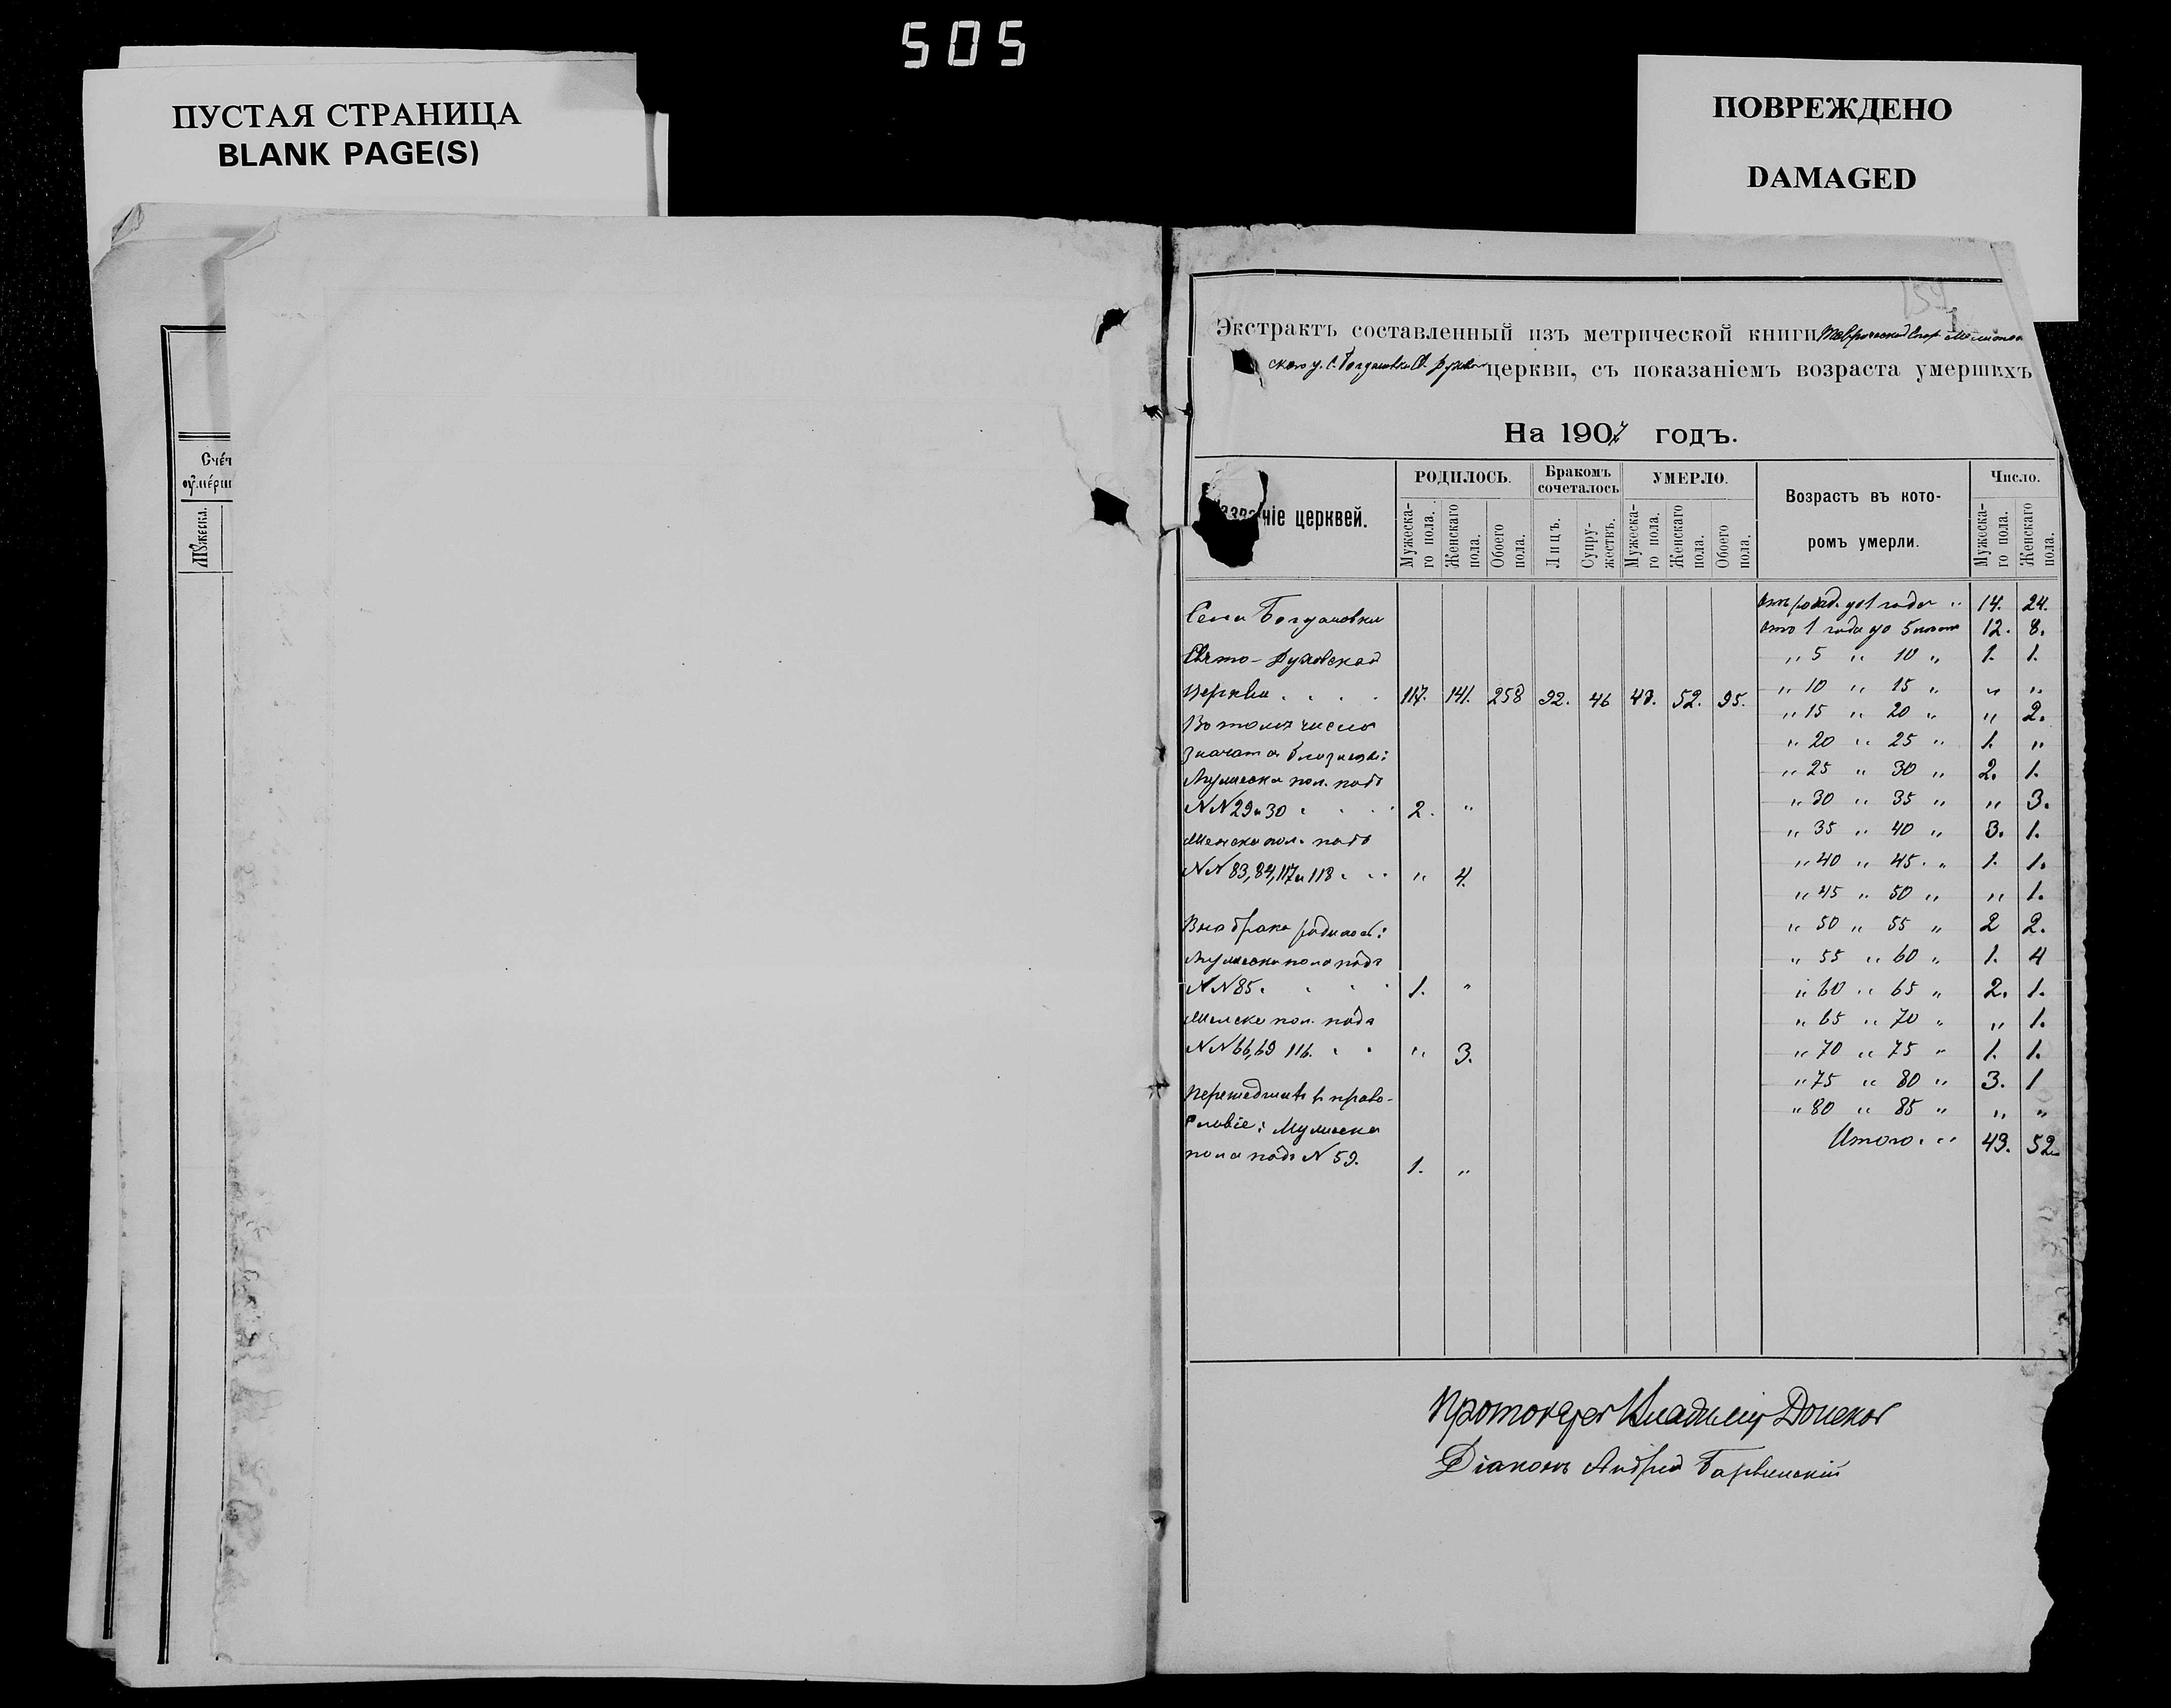 505
ПУСТАЯ СТРАНИЦА
BLANK PAGE(S)
ПОВРЕЖДЕНО
DAMAGED
Счет
Мужеска.
1
Экстрактъ составленный изъ метрической книги Таврической Епар. Мелитополь
скаго у. с. Богдановки Св. Духов. церкви, съ показаніемъ возраста умершихъ
На 1907 годъ.
Названіе церквей.
РОДИЛОСЬ.
Бракомъ сочеталось
УМЕРЛО.
Возрастъ въ кото-
ромъ умерли.
Число.
Мужеска-го пола. Женскаго пола. Обоего пола. Лицъ. Супру-жествъ. Мужеска-го пола. Женскаго пола. Обоего пола. Мужеска-го пола. Женскаго пола.
Села Богдановки
Свято-Духовской
Церкви . . . . 117. 141. 258 92. 46 43. 52. 95.
Въ томъ числѣ
значатся близнецы:
Мужеска пол. подъ
NN 29 и 30 . . . . 2. "
Женска пол. подъ
NN 83, 84, 117 и 118 . . . " 4.
Внѣ брака родилось:
Мужеска пола подъ
NN 85. . . . . 1. "
Женска пол. подъ
NN 66, 69 116. . . " 3.
Перешедших въ право-
славіе: Мужеска
пола подъ N 59. 1. "
Отъ рожд. до 1 года " 14. 24.
Отъ 1 года до 5 лѣтъ 12. 8.
" 5 " 10 " 1. 1.
" 10 " 15 " " "
" 15 " 20 " " 2.
" 20 " 25 " 1. "
" 25 " 30 " 2. 1.
" 30 " 35 " " 3.
" 35 " 40 " 3. 1.
" 40 " 45. " 1. 1.
" 45 " 50 " " 1.
" 50 " 55 " 2 2.
" 55 " 60 " 1. 4
" 60 " 65 " 2. 1.
" 65 " 70 " " 1.
" 70 " 75 " 1. 1.
" 75 " 80 " 3. 1
" 80 " 85 " " "
Итого. . . 43. 52.
Протоіерей Владиміръ Донсков
Діаконъ Андрей Барвинскій